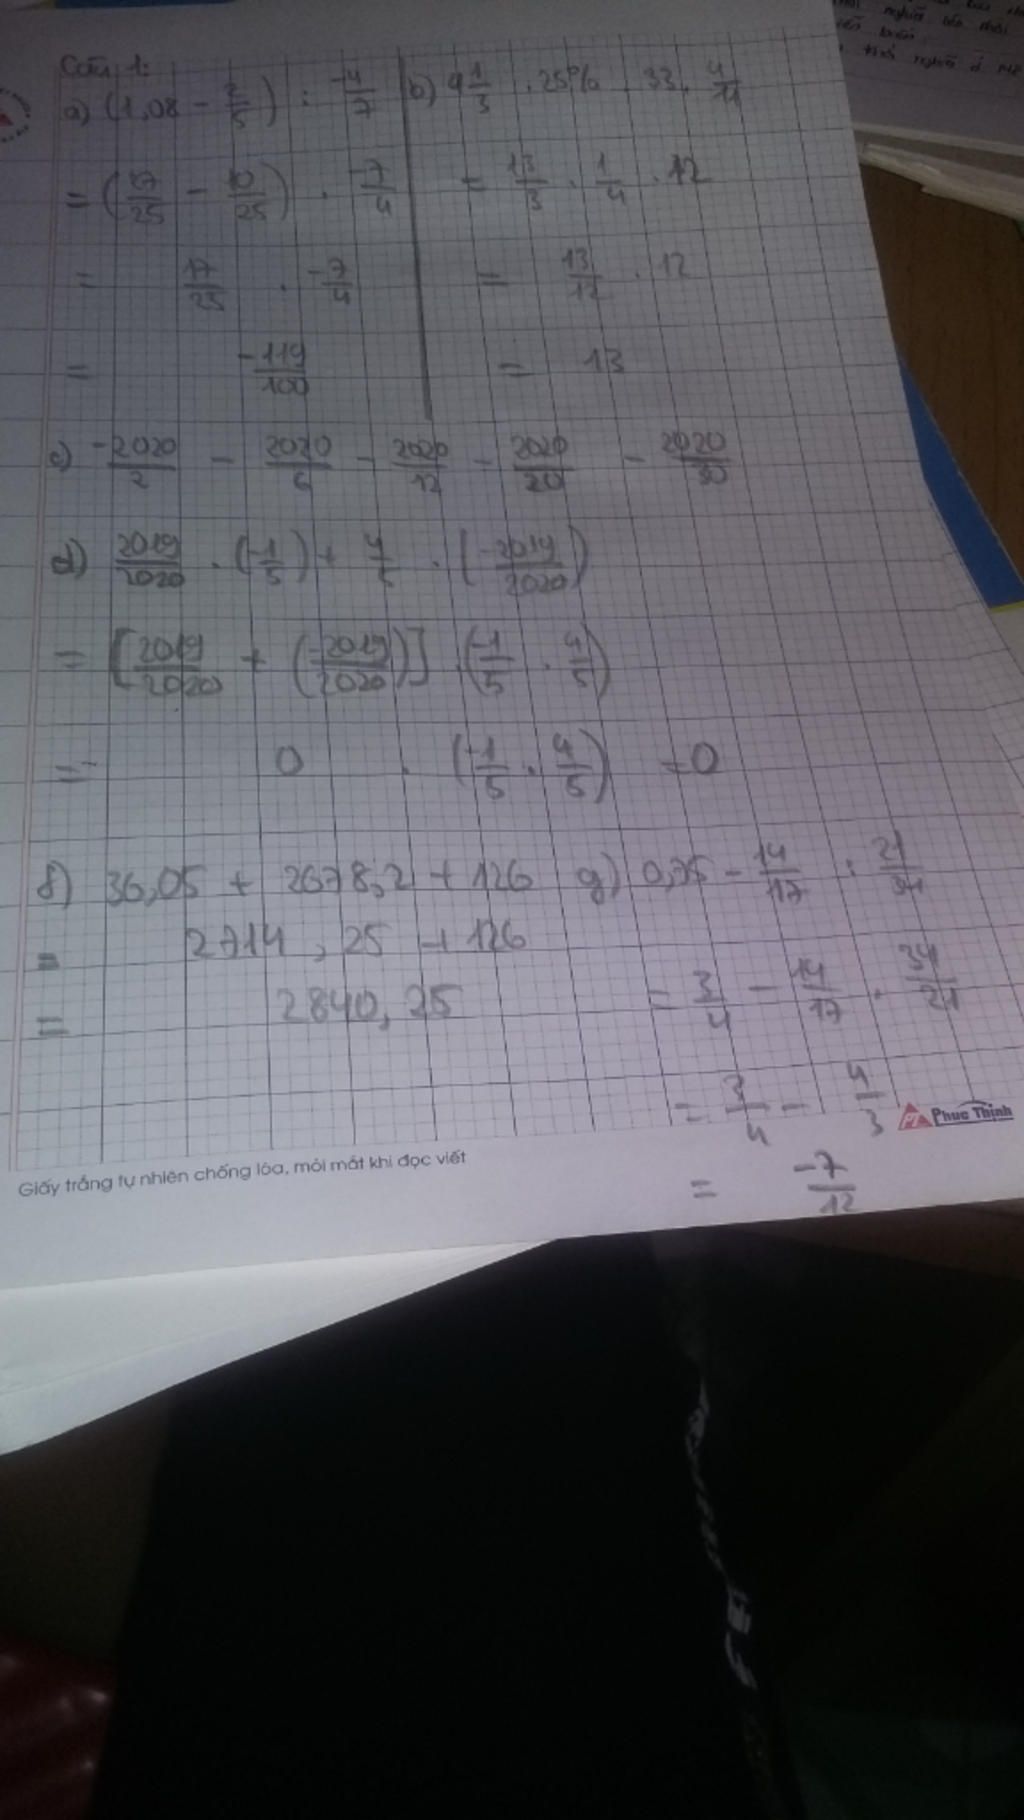 Câu 1:
a) (1,08 - 2/5) : -4/7
= (27/25 - 10/25) . -7/4
= 17/25 . -7/4
= -119/100
b) 4 1/3 . 25% . 33 . 4/11
= 13/3 . 1/4 . 12
= 13/12 . 12
= 13
c) -2020/2 - 2020/6 - 2020/12 - 2020/20 - 2020/30
d) 2019/2020 . (-1/5) + 4/5 . (-2019/2020)
= [2019/2020 + (-2019/2020)] . (-1/5 . 4/5)
= 0 . (-1/5 . 4/5) = 0
f) 36,05 + 2678,2 + 126
= 2714,25 + 126
= 2840,25
g) 0,75 - 14/17 : 21/34
= 3/4 - 14/17 . 34/21
= 3/4 - 4/3
= -7/12
PT Phuc Thinh
Giấy trắng tự nhiên chống lóa, mỏi mắt khi đọc viết